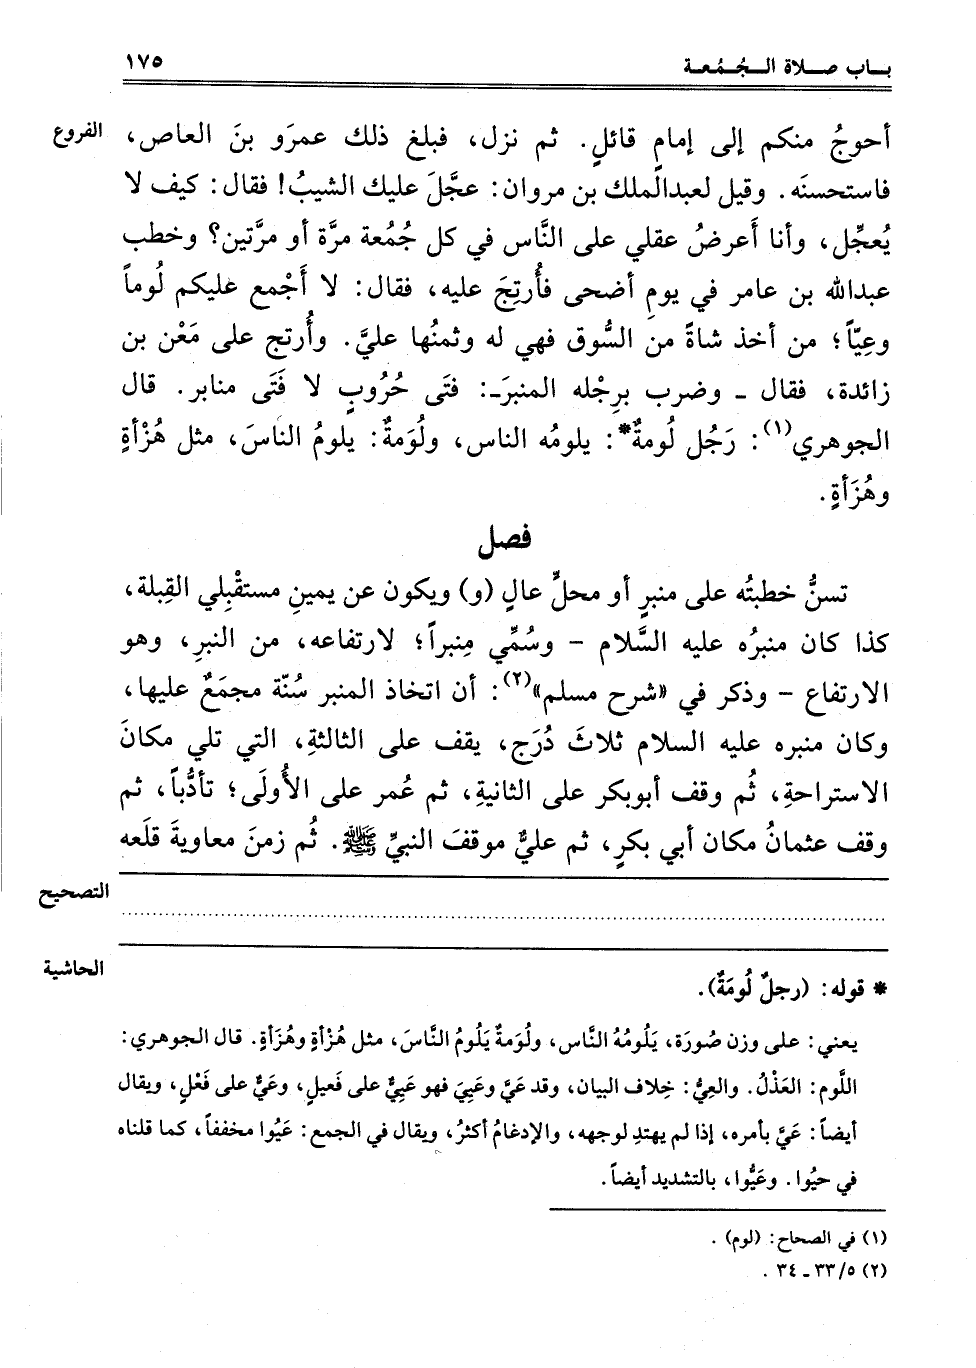 باب صلاة الجُمُعة ١٧٥
الفروع
أحوجُ منكم إلى إمامٍ قائلٍ. ثم نزل، فبلغ ذلك عمرَو بنَ العاص،
فاستحسنَه. وقيل لعبدالملك بن مروان: عجَّلَ عليك الشيبُ! فقال: كيف لا
يُعجِّل، وأنا أَعرضُ عقلي على النَّاس في كل جُمُعة مرَّة أو مرَّتين؟ وخطب
عبدالله بن عامر في يومِ أضحى فأُرتِجَ عليه، فقال: لا أَجْمع عليكم لُوماً
وعِيّاً؛ من أخذ شاةً من السُّوق فهي له وثمنُها عليَّ. وأُرتج على مَعْن بن
زائدة، فقال ـ وضرب برِجْله المنبرَـ: فتَى حُرُوبٍ لا فَتَى منابر. قال
الجوهري(١): رَجُل لُومةٌ*: يلومُه الناس، ولُوَمةٌ: يلومُ الناسَ، مثل هُزْأةٍ
وهُزَأةٍ.
فصل
تسنُّ خطبتُه على منبرٍ أو محلٍّ عالٍ (و) ويكون عن يمينِ مستقْبِلي القِبلة،
كذا كان منبرُه عليه السَّلام – وسُمِّي مِنبراً؛ لارتفاعه، من النبرِ، وهو
الارتفاع – وذكر في «شرح مسلم»(٢): أن اتخاذ المنبر سُنّة مجمَعٌ عليها،
وكان منبره عليه السلام ثلاثَ دُرَج، يقف على الثالثةِ، التي تلي مكانَ
الاستراحةِ، ثُم وقف أبوبكر على الثانيةِ، ثم عُمر على الأُولَى؛ تأدُّباً، ثم
وقف عثمانُ مكان أبي بكرٍ، ثم عليٌّ موقفَ النبيِّ ﷺ. ثُم زمنَ معاويةَ قلَعه
التصحيح
الحاشية
* قوله: (رجلٌ لُومَةٌ).
يعني: على وزن صُورَة، يَلُومُهُ النَّاس، ولُوَمةٌ يَلُومُ النَّاسَ، مثل هُزْأةٍ وهُزَأةٍ. قال الجوهري:
اللَّوم: العَذْلُ. والعِيُّ: خِلاف البيان، وقد عَيَّ وعَيِيَ فهو عَيِيٌّ على فَعيلٍ، وعَيٌّ على فَعْلٍ، ويقال
أيضاً: عَيَّ بأمره، إذا لم يهتدِ لوجهه، والإدغامُ أكثرُ، ويقال في الجمع: عَيُوا مخففاً، كما قلناه
في حيُوا. وعَيُّوا، بالتشديد أيضاً.
(١) في الصحاح: (لوم).
(٢) ٥/ ٣٣ ـ ٣٤.